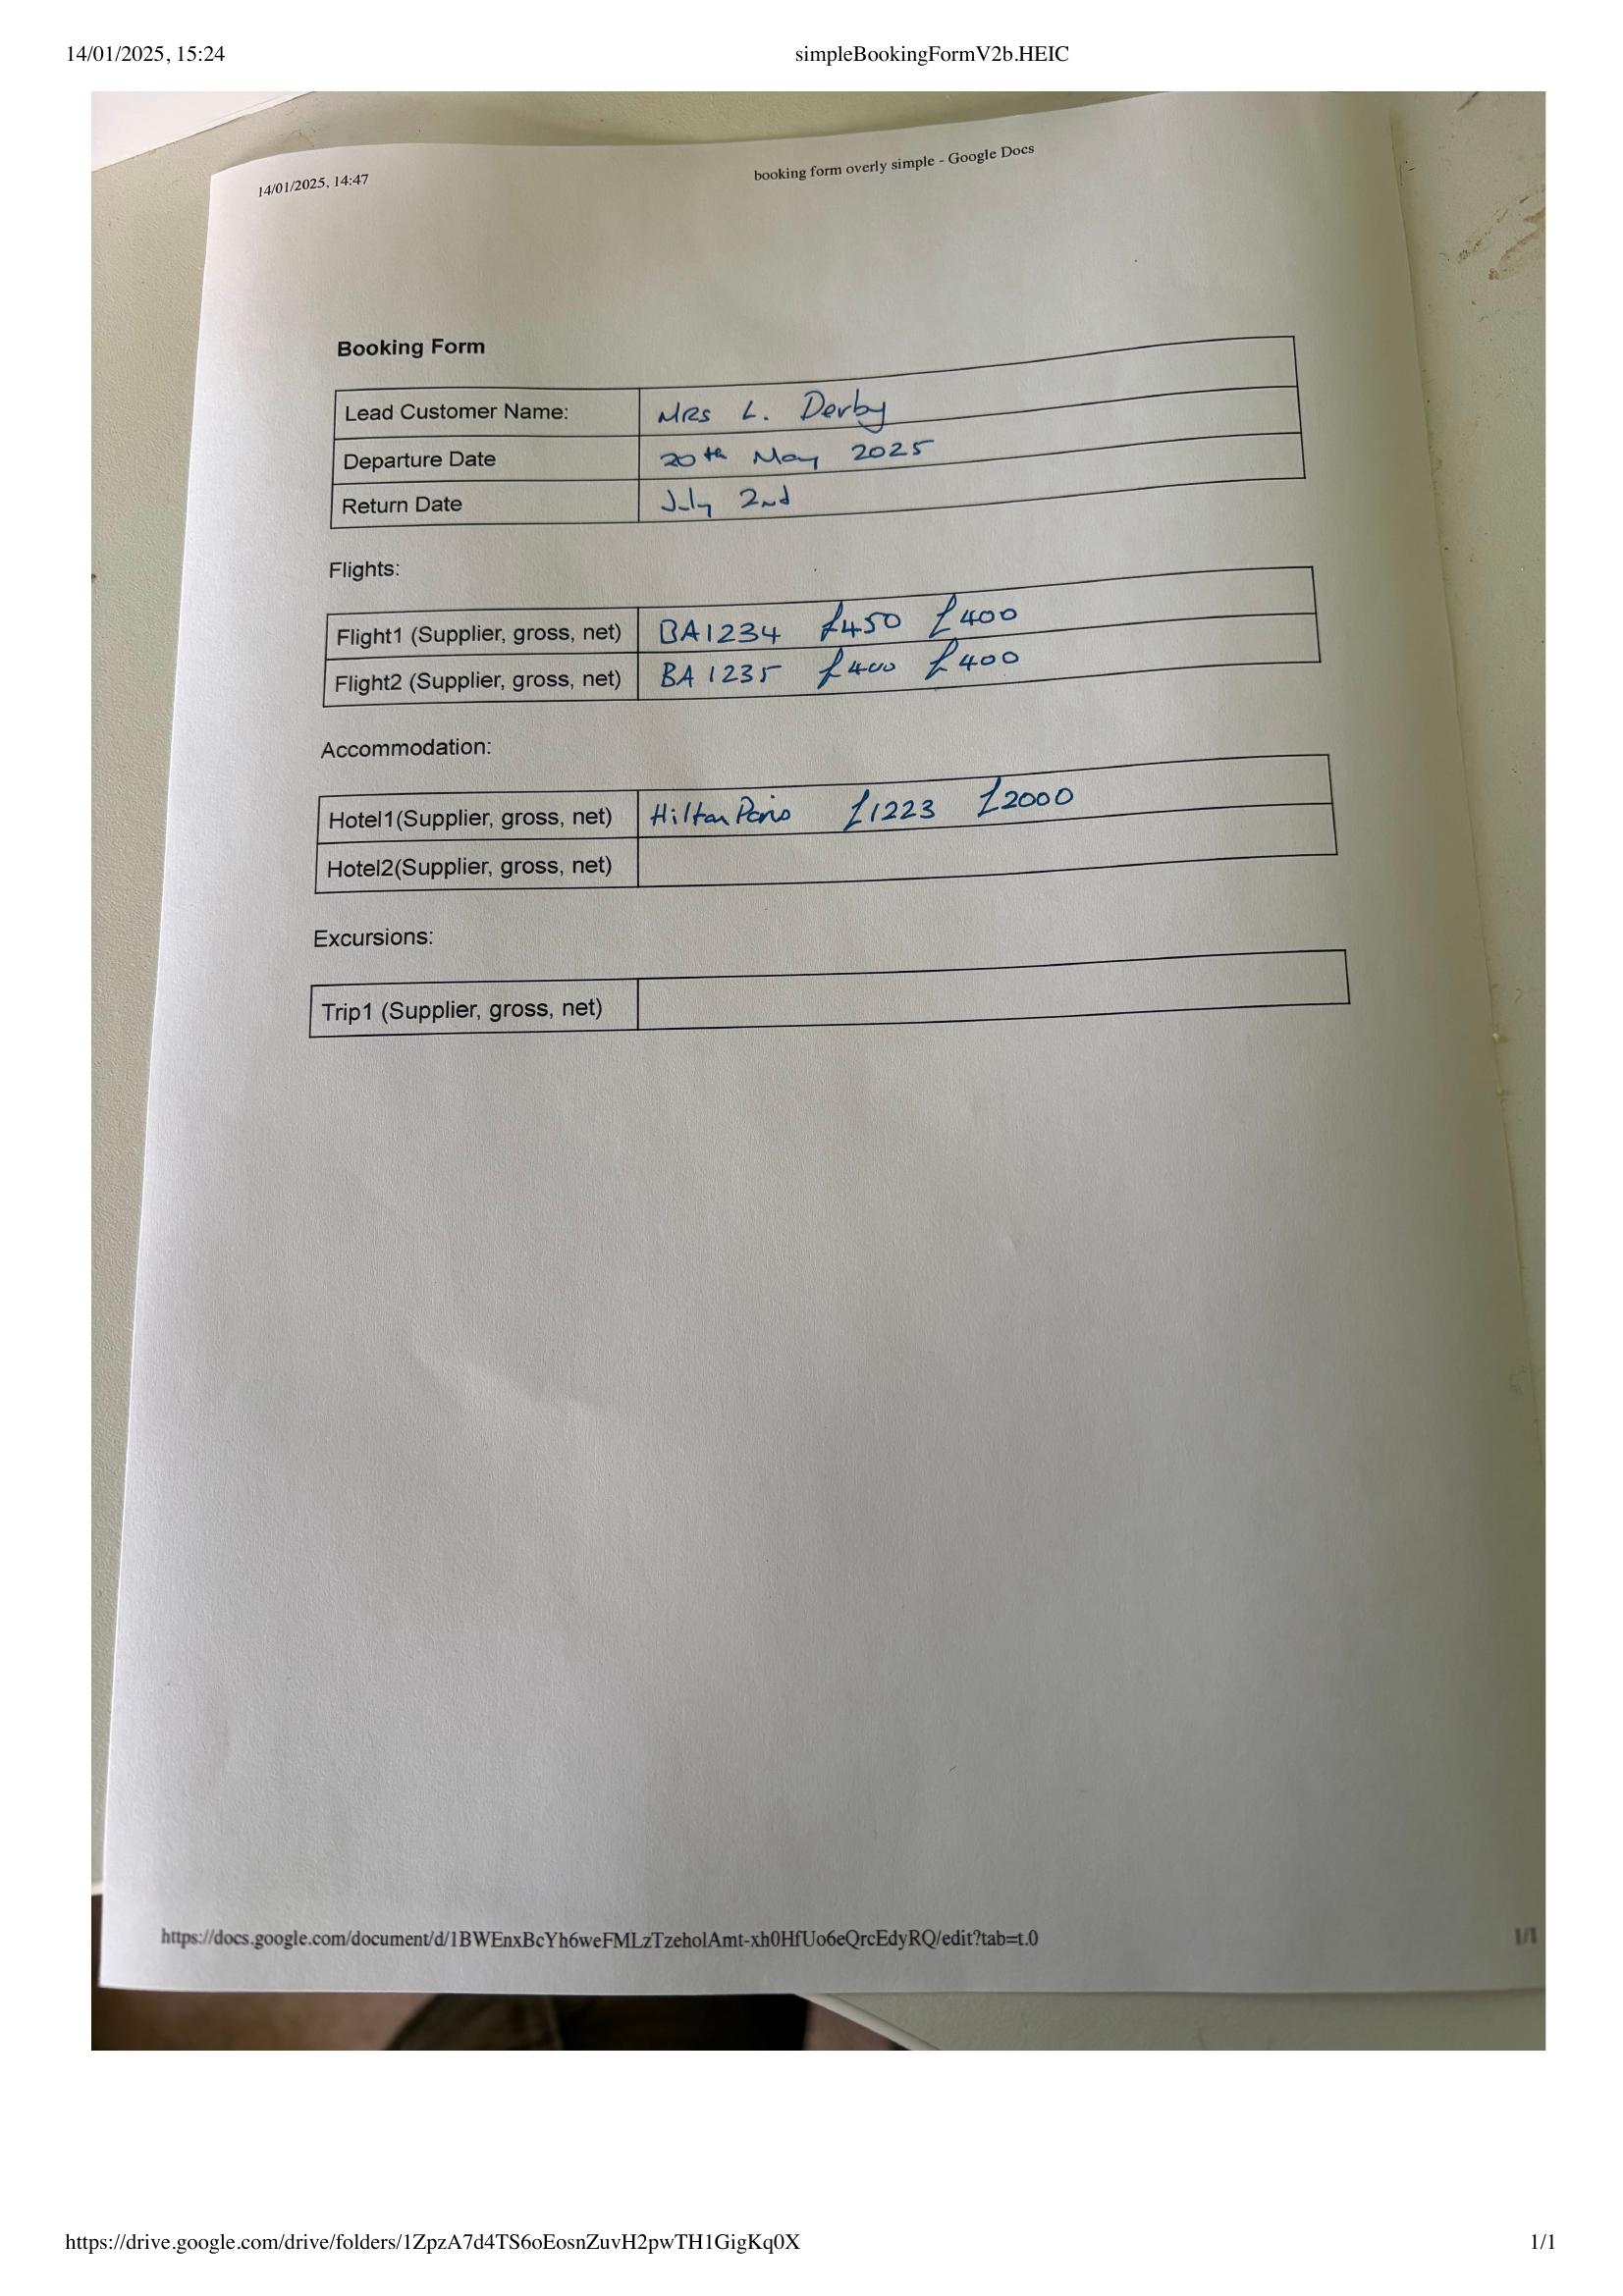 14/01/2025, 15:24 simpleBookingFormV2b.HEIC
14/01/2025, 14:47 booking form overly simple - Google Docs
Booking Form
Lead Customer Name: MRS L. Derby
Departure Date 20th May 2025
Return Date July 2nd
Flights:
Flight1 (Supplier, gross, net) BA1234 £450 £400
Flight2 (Supplier, gross, net) BA 1235 £400 £400
Accommodation:
Hotel1(Supplier, gross, net) Hilton Paris £1223 £2000
Hotel2(Supplier, gross, net)
Excursions:
Trip1 (Supplier, gross, net)
https://docs.google.com/document/d/1BWEnxBcYh6weFMLzTzeholAmt-xh0HfUo6eQrcEdyRQ/edit?tab=t.0 1/1
https://drive.google.com/drive/folders/1ZpzA7d4TS6oEosnZuvH2pwTH1GigKq0X 1/1